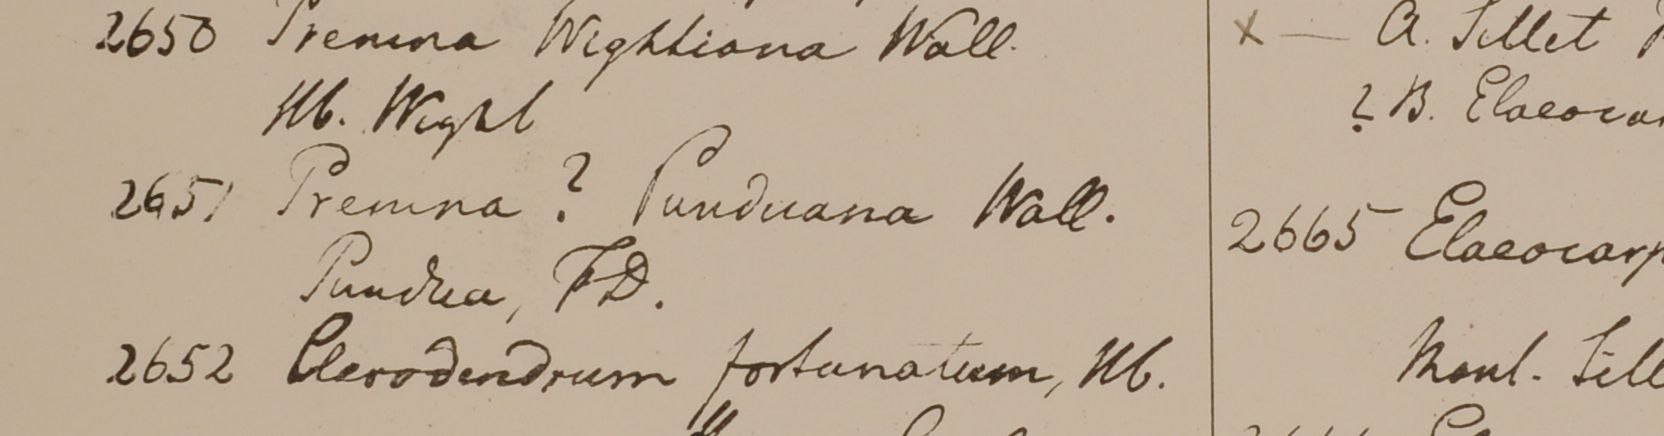 2650 Premna Wightiana Wall.
Hb. Wight
2651 Premna ? Punduana Wall.
Pundua, F.D.
2652 Clerodendrum fortunatum, Hb.
x — A. Sillet
? B. Elaeocar
2665 Elaeocarp
Mont. Sill